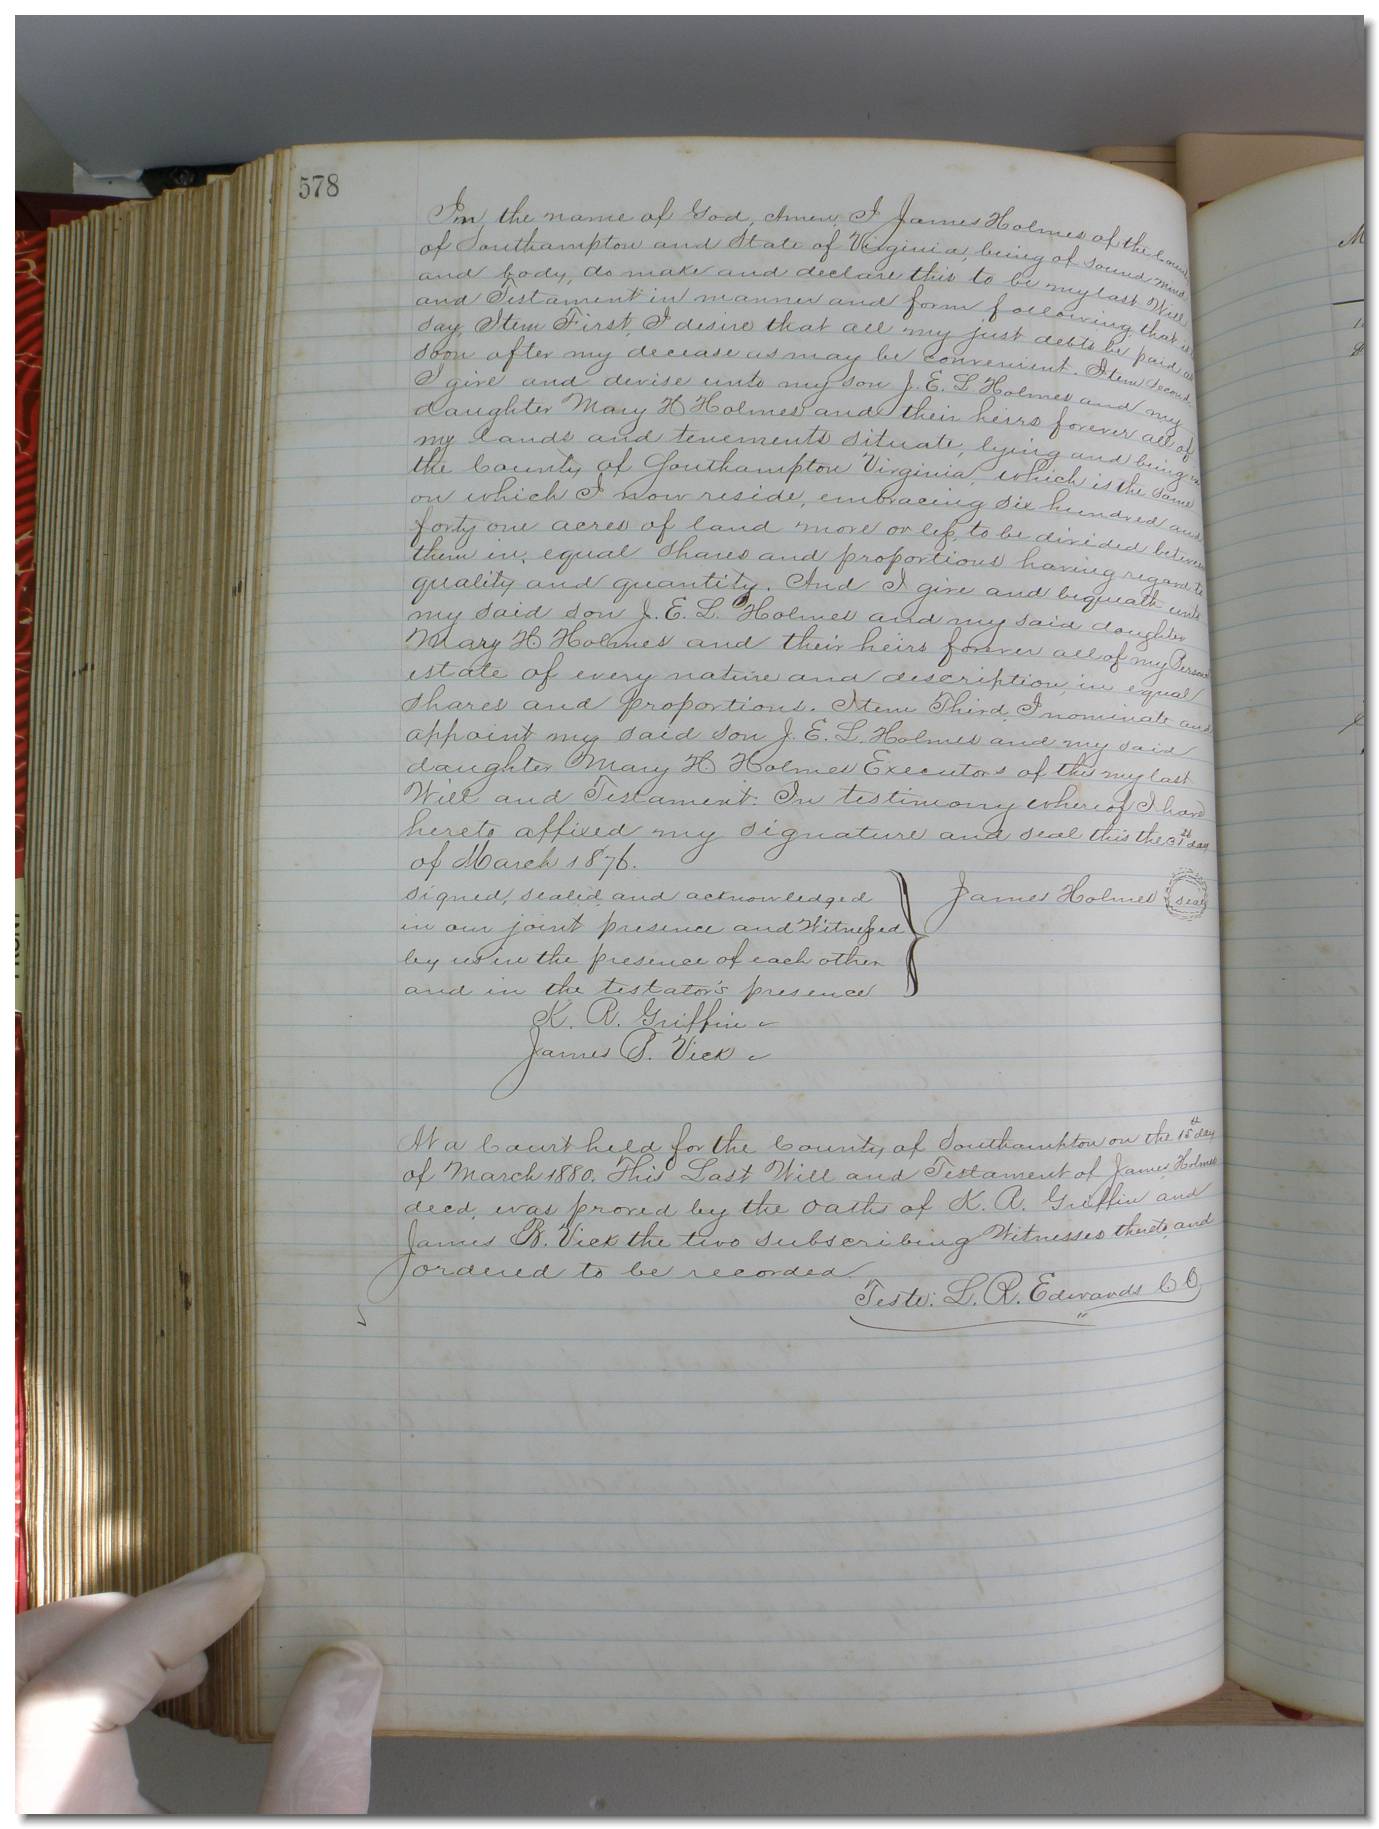 578
In the name of God, Amen, I James Holmes of the
of Southampton and State of Virginia, being of sound mind
and body, do make and declare this to be my last Will
and Testament in manner and form following that is
say, Item First, I desire that all my just debts be paid as
soon after my decease as may be convenient. Item Second.
I give and devise unto my son J. E. L Holmes and my
daughter Mary H Holmes and their heirs forever all of
my lands and tenements situate, lying and being in
the County of Southampton Virginia, which is the same
on which I now reside, embracing six hundred and
forty one acres of land more or less, to be divided between
them in equal shares and proportions having regard to
quality and quantity. And I give and bequeath unto
my said son J. E. L. Holmes and my said daughter
Mary H Holmes and their heirs forever all of my
estate of every nature and description, in equal
shares and proportions. Item Third, I nominate and
appoint my said son J. E. L. Holmes and my said
daughter Mary H Holmes Executors of this my last
Will and Testament. In testimony whereof I have
hereto affixed my signature and seal this the day
of March 1876.
signed, sealed, and acknowledged
in our joint presence and Witnessed
by us in the presence of each other
and in the testator's presence
James Holmes seal
K. R. Griffin
James B. Vick
At a Court held for the County of Southampton on the 15th day
of March 1880. This Last Will and Testament of James Holmes
decd, was proved by the oaths of K. R. Griffin and
James B. Vick the two subscribing Witnesses thereto, and
ordered to be recorded.
Teste: L. R. Edwards C C